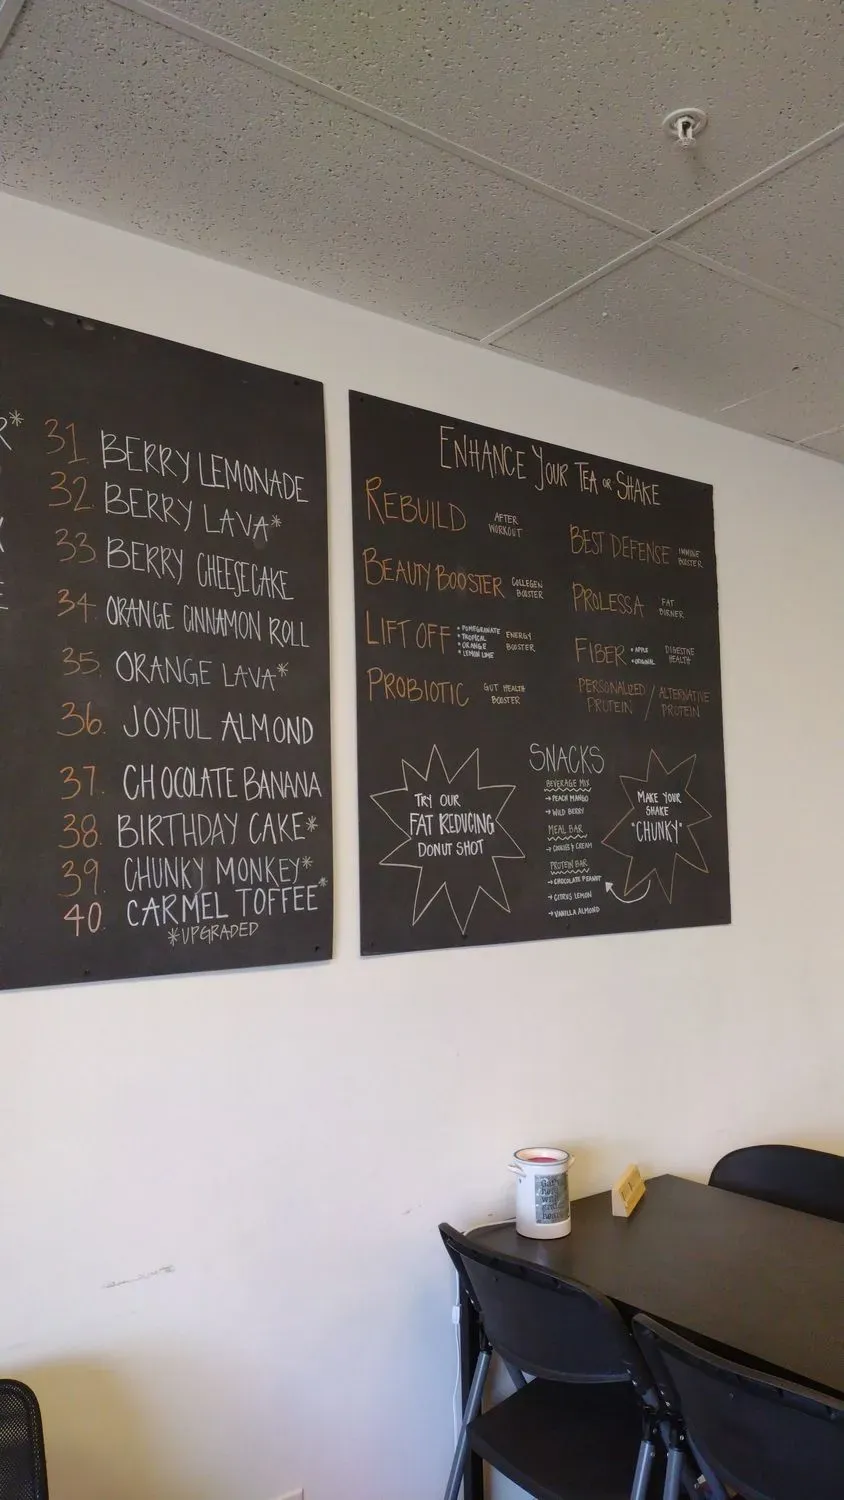 31 BERRY LEMONADE
32 BERRY LAVA*
33 BERRY CHEESECAKE
34. ORANGE CINNAMON ROLL
35. ORANGE LAVA*
36. JOYFUL ALMOND
37. CHOCOLATE BANANA
38. BIRTHDAY CAKE*
39. CHUNKY MONKEY*
40 CARMEL TOFFEE*
*UPGRADED
ENHANCE YOUR TEA OR SHAKE
REBUILD AFTER
WORKOUT
BEAUTY BOOSTER COLLEGEN
BOOSTER
LIFT OFF
• POMEGRANATE
• TROPICAL
• ORANGE
• LEMON LIME
ENERGY
BOOSTER
PROBIOTIC GUT HEALTH
BOOSTER
BEST DEFENSE IMMUNE
BOOSTER
PROLESSA FAT
BURNER
FIBER • APPLE
• ORIGINAL
DIGESTIVE
HEALTH
PERSONALIZED / ALTERNATIVE
PROTEIN PROTEIN
TRY OUR
FAT REDUCING
DONUT SHOT
SNACKS
BEVERAGE MIX
→ PEACH MANGO
→ WILD BERRY
MEAL BAR
→ COOKIES & CREAM
PROTEIN BAR
→ CHOCOLATE PEANUT
→ CITRUS LEMON
→ VANILLA ALMOND
MAKE YOUR
SHAKE
"CHUNKY"